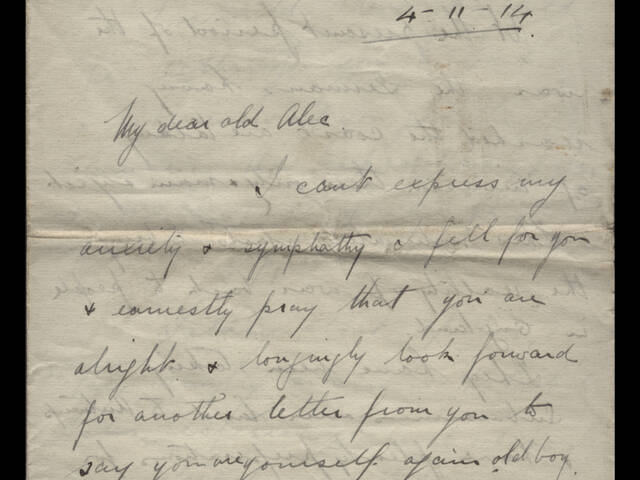 4-11-14.
My dear old Alec
I cant express my
anxiety & symphathy & fell for you
& earnestly pray that you are
alright & longingly look forward
for another letter from you to
say you are yourself again old boy.